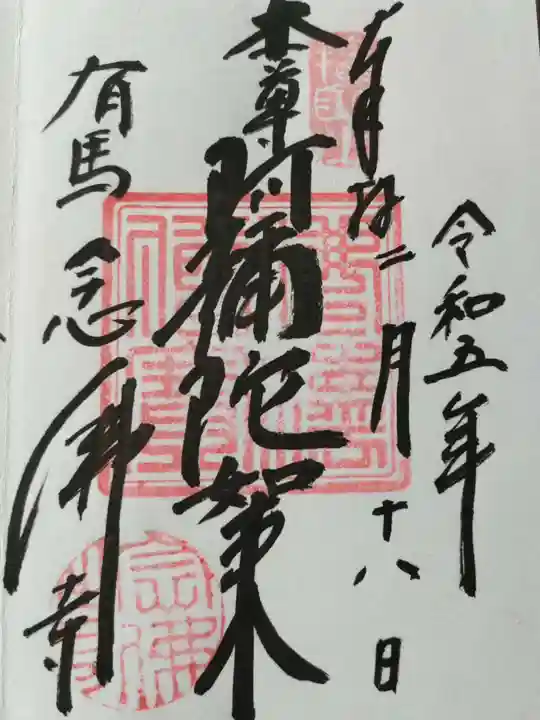 令和五年
奉拝 二月十八日
本尊 阿彌陀如来
有馬 念佛寺